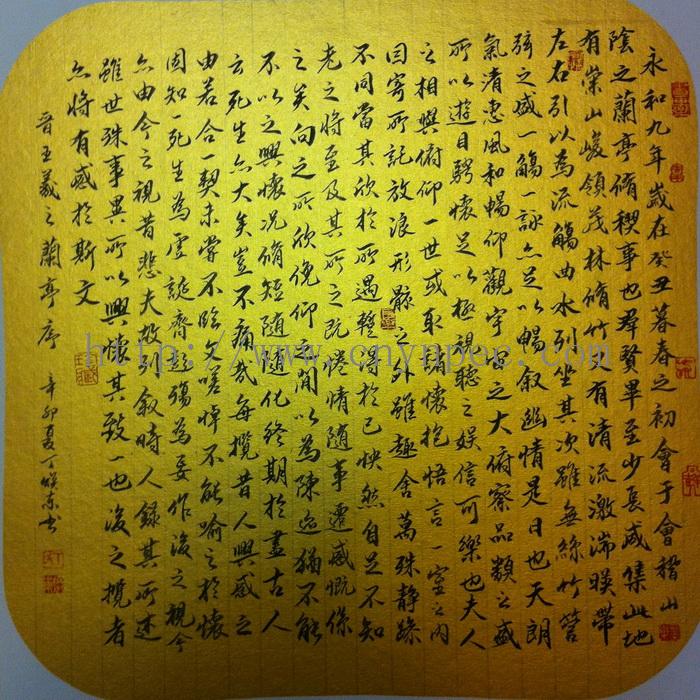 永和九年歲在癸丑暮春之初會于會稽山
陰之蘭亭脩稧事也羣賢畢至少長咸集此地
有崇山峻領茂林脩竹又有清流激湍暎帶
左右引以為流觴曲水列坐其次雖無絲竹管
弦之盛一觴一詠亦足以暢叙幽情是日也天朗
氣清惠風和暢仰觀宇宙之大俯察品類之盛
所以遊目騁懷足以極視聽之娛信可樂也夫人
之相與俯仰一世或取諸懷抱悟言一室之內
因寄所託放浪形骸之外雖趣舍萬殊静躁
不同當其欣於所遇蹔得於己怏然自足不知
老之將至及其所之既惓情隨事遷感慨係
之矣向之所欣俛仰之間以為陳迹猶不能
不以之興懷况脩短隨化終期於盡古人
云死生亦大矣豈不痛哉每攬昔人興感之
由若合一契未嘗不臨文嗟悼不能喻之於懷
固知一死生為虛誕齊彭殤為妄作後之視今
亦由今之視昔悲夫故列叙時人錄其所述
雖世殊事異所以興懷其致一也後之攬者
亦將有感於斯文
晉王羲之蘭亭序 辛卯夏丁東書
http://www.cnynpec.com